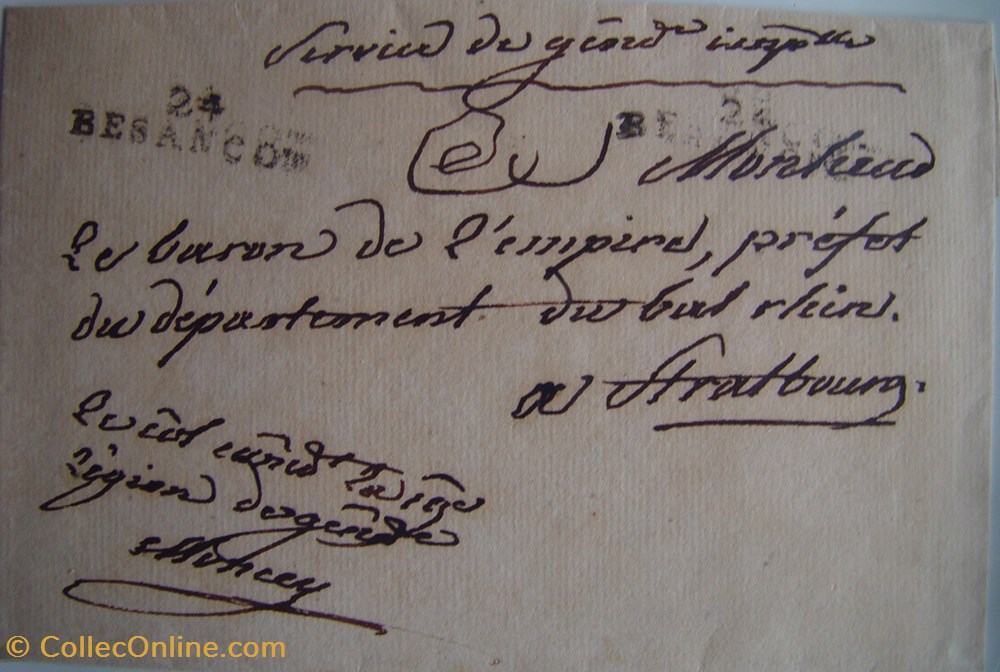 Service de gend.e imp.le
24 24
BESANCON BESANCON
Monsieur
Le baron de l'empire, préfet
du département du bas rhin.
a Strasbourg.
Le col com.d la
Légion de gend.e
Moncey
© CollecOnline.com